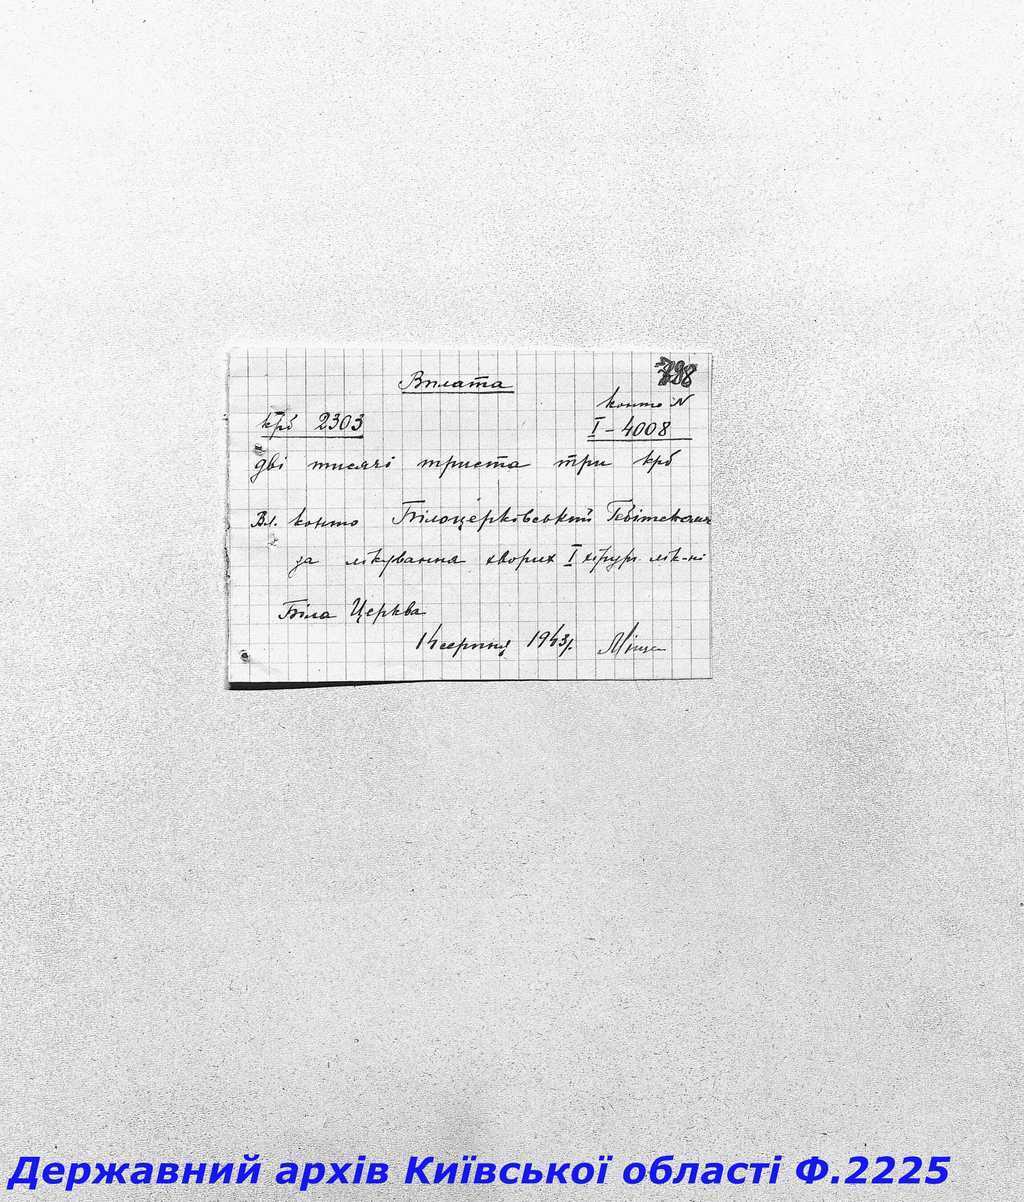 798
Вплата
конто N
крб 2303
I - 4008
дві тисячі триста три крб
Вл. конто Білоцерківський
за лікування хворих I хірург. лік-ні
Біла Церква
14 серпня 1943 р.
Державний архів Київської області Ф.2225